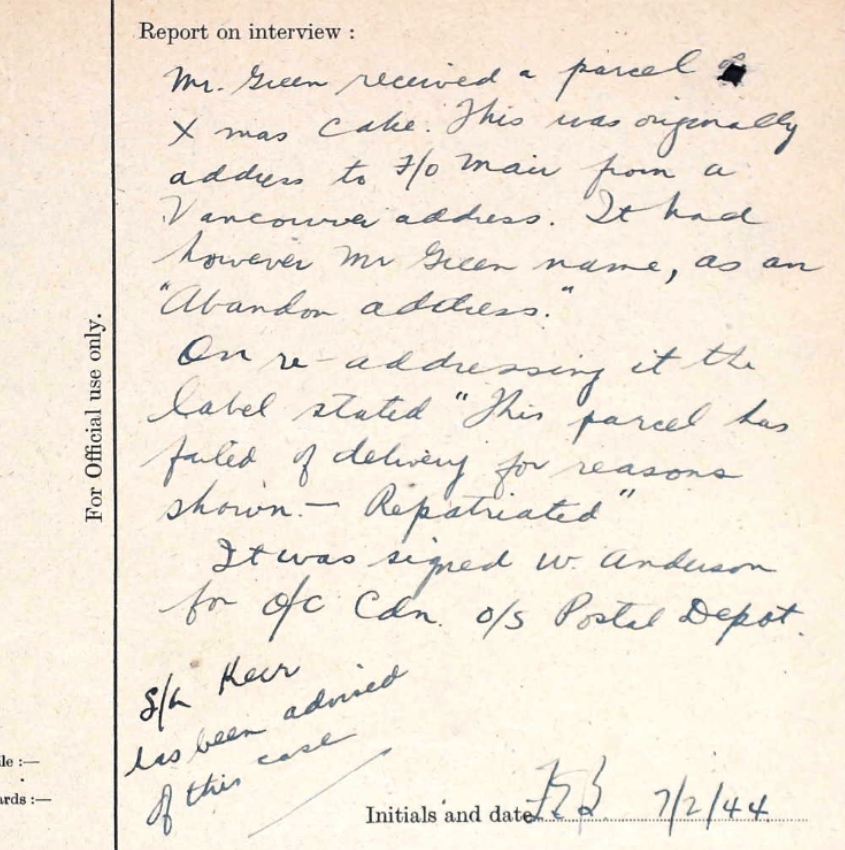 Report on interview :
Mr. Green received a parcel of
Xmas Cake. This was originally
address to F/O Mair from a
Vancouver address. It had
however Mr Green name, as an
"Abandon address."
On re-addressing it the
label stated "This parcel has
failed of delivery for reasons
shown.— Repatriated"
It was signed W. Anderson
for O/C Cdn. O/S Postal Depot.
S/L Keir
has been advised
of this case
For Official use only.
le :—
ards :—
Initials and date 7/2/44